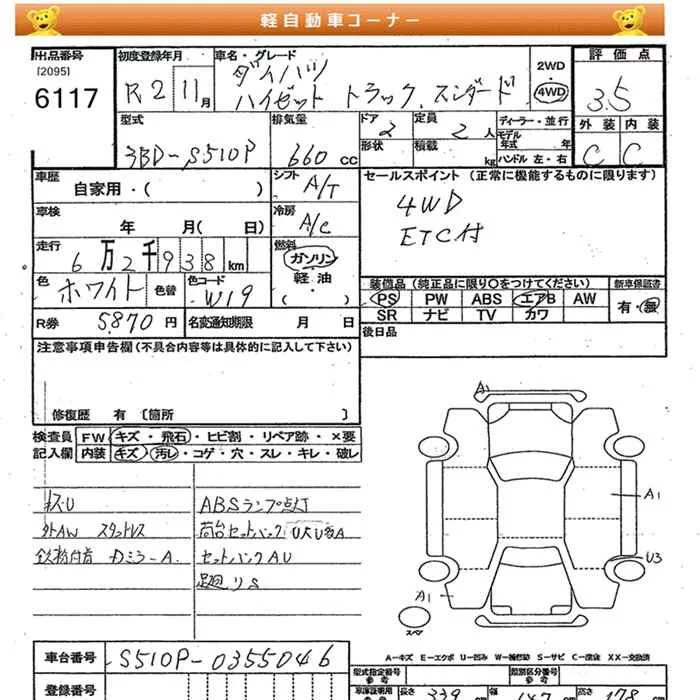 軽自動車コーナー
出品番号
[2095]
6117
初度登録年月
R2 11月
車名・グレード
ダイハツ
ハイゼット トラック. スタンダード
2WD
・
4WD
評価点
3.5
外装 内装
C C
型式
3BD-S510P
排気量
660 cc
ドア
2
定員
2人
形状
積載
kg
ディーラー・並行
モデル
年式 年
ハンドル 左・右
車歴
自家用・( )
シフト
A/T
セールスポイント (正常に機能するものに限ります)
4WD
ETC付
車検
年 月( 日)
冷房
A/C
走行
6万2千938km
燃料
ガソリン
軽・油
・( )
色
ホワイト
色替
色コード
W19
装備品(純正品に限り○をつけてください)
新車保証書
PS PW ABS エアB AW
有・無
SR ナビ TV カワ
R券 5,870円
名変通知期限 月 日
後日品
注意事項申告欄(不具合内容等は具体的に記入して下さい)
修復歴 有 〔箇所 〕
検査員
記入欄
FW キズ・飛石・ヒビ割・リペア跡・×要
内装 キズ・汚レ・コゲ・穴・スレ・キレ・破レ
キズ・U
ABSランプ点灯
外AW スタットレス
荷台セットバックU大U多A
鉄粉付着 Dミラ-A.
セットバックAU
足廻りS
A
A1
U3
A1
スペア
A-キズ E-エクボ U-凹み W-補修跡 S-サビ C-腐食 XX-交換済
車台番号
S510P-0355046
登録番号
型式指定番号
類別区分番号
参考
長さ 339
幅 147
高さ 178